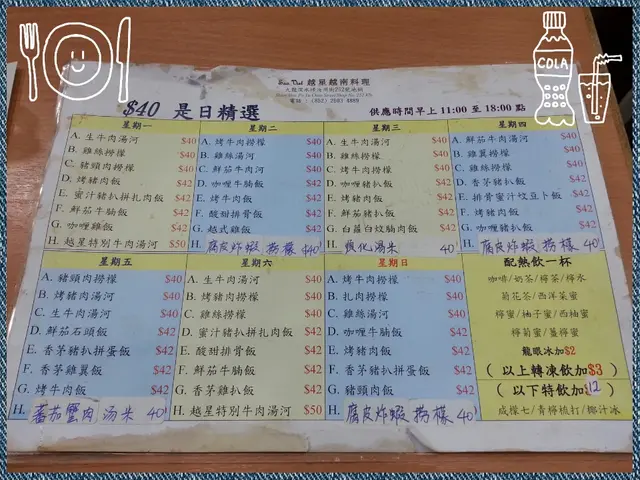 COLA
越星越南料理
$40 是日精選
供應時間早上 11:00 至 18:00 點
星期一
A. 生牛肉湯河 $40
B. 雞絲撈檬 $40
C. 豬頸肉撈檬 $40
D. 烤豬肉飯 $42
E. 蜜汁豬扒拼扎肉飯 $42
F. 鮮茄牛腩飯 $42
G. 咖喱雞飯 $42
H. 越星特別牛肉湯河 $50
星期二
A. 烤牛肉撈檬 $40
B. 雞絲湯河 $40
C. 鮮茄牛肉河 $40
D. 咖喱牛腩飯 $42
E. 烤牛肉飯 $42
F. 酸甜排骨飯 $42
G. 越式雞飯 $42
H. 腐皮炸蝦 撈檬 $40
星期三
A. 生牛肉湯河 $40
B. 雞絲撈檬 $40
C. 烤豬肉撈檬 $40
D. 咖喱豬扒飯 $42
E. 烤豬肉飯 $42
F. 鮮茄豬扒飯 $42
G. 白蘿白炆腩肉飯 $42
H. 湯米 40
星期四
A. 鮮茄牛肉湯河 $40
B. 雞翼撈檬 $40
C. 雞絲湯河 $40
D. 香茅豬扒飯 $42
E. 排骨蜜汁炆豆卜飯 $42
F. 烤豬肉飯 $42
G. 咖喱雞飯 $42
H. 腐皮炸蝦 撈檬 40
星期五
A. 豬頸肉撈檬 $40
B. 烤豬肉湯河 $40
C. 生牛肉湯河 $40
D. 鮮茄石頭飯 $42
E. 香茅豬扒拼蛋飯 $42
F. 香茅雞翼飯 $42
G. 烤牛肉飯 $42
H. 蕃茄蟹肉 汤米 40
星期六
A. 生牛肉湯河 $40
B. 烤豬肉撈檬 $40
C. 烤雞肉撈檬 $40
D. 蜜汁豬扒拼扎肉飯 $42
E. 酸甜排骨飯 $42
F. 鮮茄牛腩飯 $42
G. 香茅雞扒飯 $42
H. 越星特別牛肉湯河 $50
星期日
A. 烤牛肉撈檬 $40
B. 扎肉撈檬 $40
C. 雞絲湯河 $40
D. 咖喱牛腩飯 $42
E. 烤豬肉飯 $42
F. 香茅豬扒蛋飯 $42
G. 豬頸肉飯 $42
H. 腐皮炸蝦 撈檬 40
配熱飲一杯
咖啡/奶茶/檸茶/檸水
菊花茶/西洋菜蜜
檸蜜/柚子蜜/西柚蜜
檸菊蜜/薑檸蜜
龍眼冰加$2
( 以上轉凍飲加$3 )
( 以下特飲加12 )
咸檬七/青檸梳打/椰汁冰